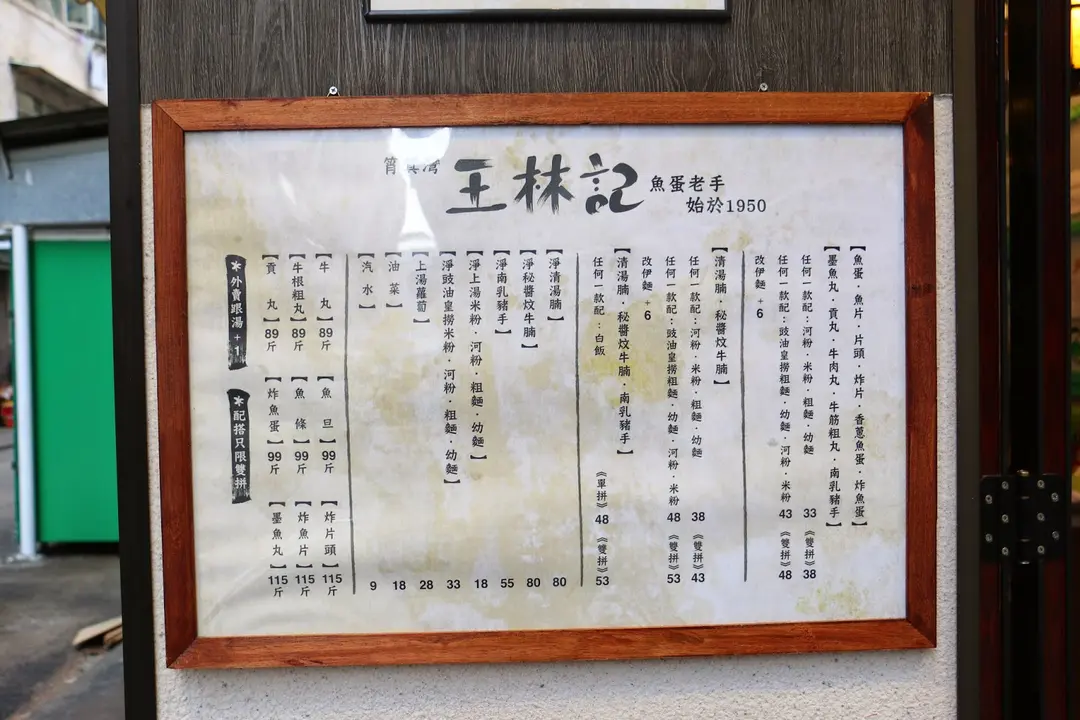 筲箕灣
王林記
魚蛋老手
始於1950
【魚蛋．魚片．片頭．炸片．香蔥魚蛋．炸魚蛋】
【墨魚丸．貢丸．牛肉丸．牛筋粗丸．南乳豬手】
任何一款配：河粉．米粉．粗麵．幼麵 33 《雙拼》38
任何一款配：豉油皇撈粗麵．幼麵．河粉．米粉 43 《雙拼》48
改伊麵 +6
【清湯腩．秘醬炆牛腩】
任何一款配：河粉．米粉．粗麵．幼麵 38 《雙拼》43
任何一款配：豉油皇撈粗麵．幼麵．河粉．米粉 48 《雙拼》53
改伊麵 +6
【清湯腩．秘醬炆牛腩．南乳豬手】
任何一款配：白飯 《單拼》48 《雙拼》53
【淨清湯腩】 80
【淨秘醬炆牛腩】 80
【淨南乳豬手】 55
【淨上湯米粉．河粉．粗麵．幼麵】 18
【淨豉油皇撈米粉．河粉．粗麵．幼麵】 33
【上湯蘿蔔】 28
【油菜】 18
【汽水】 9
【牛丸】89斤 【魚旦】99斤 【炸片頭】115斤
【牛根粗丸】89斤 【魚條】99斤 【炸魚片】115斤
【貢丸】89斤 【炸魚蛋】99斤 【墨魚丸】115斤
＊外賣跟湯+1
＊配搭只限雙拼